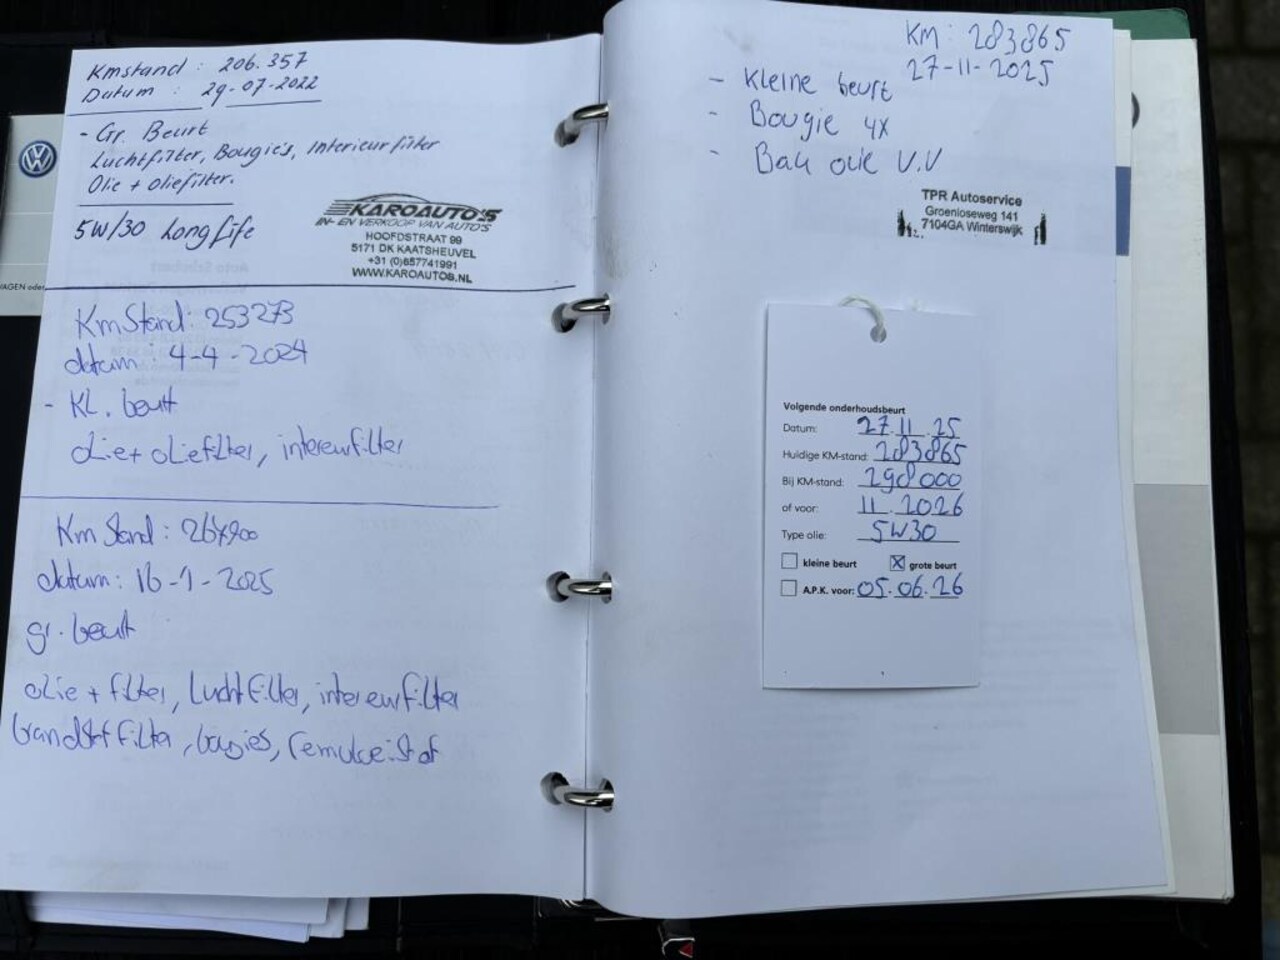 Kmstand : 206.357
Datum : 29-07-2022
- Gr. Beurt
Luchtfilter, Bougie's, Interieurfilter
Olie + oliefilter.
5W/30 Longlife
KAROAUTO'S
IN- EN VERKOOP VAN AUTO'S
HOOFDSTRAAT 99
5171 DK KAATSHEUVEL
+31 (0)657741991
WWW.KAROAUTOS.NL
Km Stand: 253273
datum : 4-4-2024
- KL. beurt
olie + oliefilter, interieurfilter
Km Stand : 267900
datum: 16-1-2025
gr. beurt
olie + filter, Luchtfilter, interieurfilter
brandstoffilter, bougies, remvloeistof
VAGEN oder
KM : 283865
27-11-2025
- Kleine beurt
- Bougie 4X
- Bak olie V.V
TPR Autoservice
Groenloseweg 141
7104GA Winterswijk
Volgende onderhoudsbeurt
Datum: 27.11.25
Huidige KM-stand: 283865
Bij KM-stand: 298000
of voor: 11.2026
Type olie: 5W30
kleine beurt X grote beurt
A.P.K. voor: 05.06.26